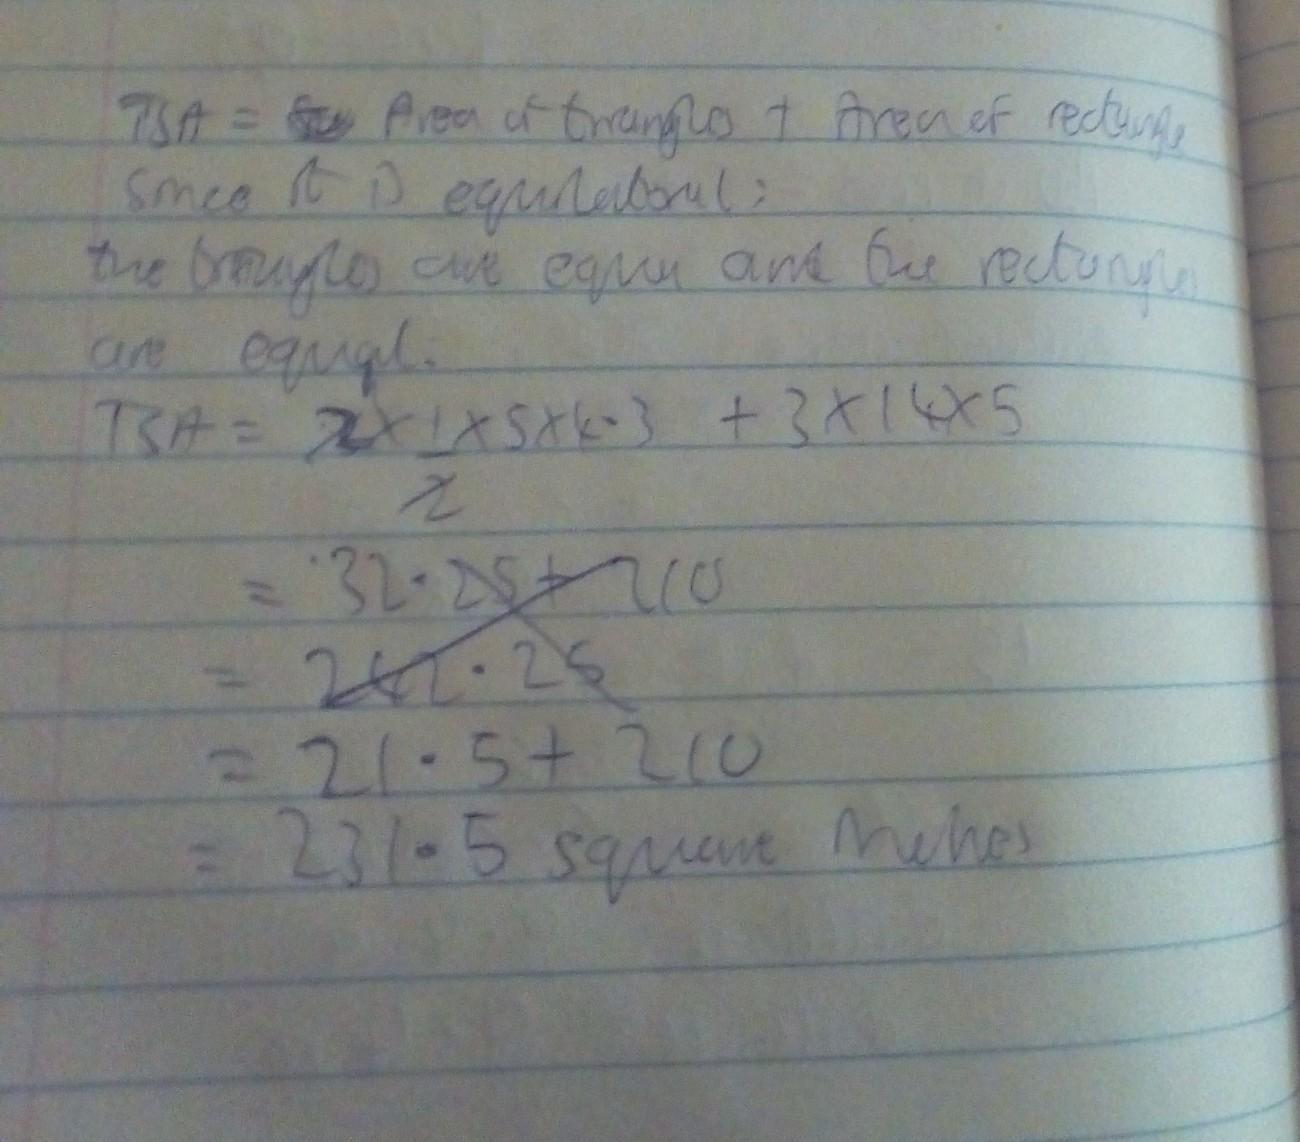 TSA = Area of triangles + Area of rectangle
Since it is equilateral:
the triangles are equal and the rectangles
are equal.
TSA = 2 × 1 × 5 × 4.3 + 3 × 14 × 5
2
= 32.25 + 210
= 242.25
= 21.5 + 210
= 231.5 square metres